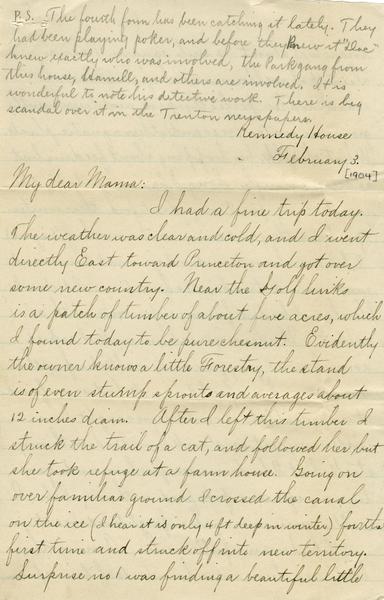 P.S. The fourth form has been catching it lately. They
had been playing poker, and before they knew it "Doc"
knew exactly who was involved, the Park gang from
this house, Hamill, and others are involved. It is
wonderful to note his detective work. There is big
scandal over it in the Trenton newspapers.
Kennedy House
February 3.
[1904]
My dear Mama:
I had a fine trip today.
The weather was clear and cold, and I went
directly East toward Princeton and got over
some new country. Near the Golf links
is a patch of timber of about five acres, which
I found today to be pure chesnut. Evidently
the owner knows a little Forestry, the stand
is of even stump sprouts and averages about
12 inches diam. After I left this timber I
struck the trail of a cat, and followed her but
she took refuge at a farm house. Going on
over familiar ground I crossed the canal
on the ice (I hear it is only 4 ft deep in winter) for the
first time and struck off into new territory.
Surprise no 1 was finding a beautiful little